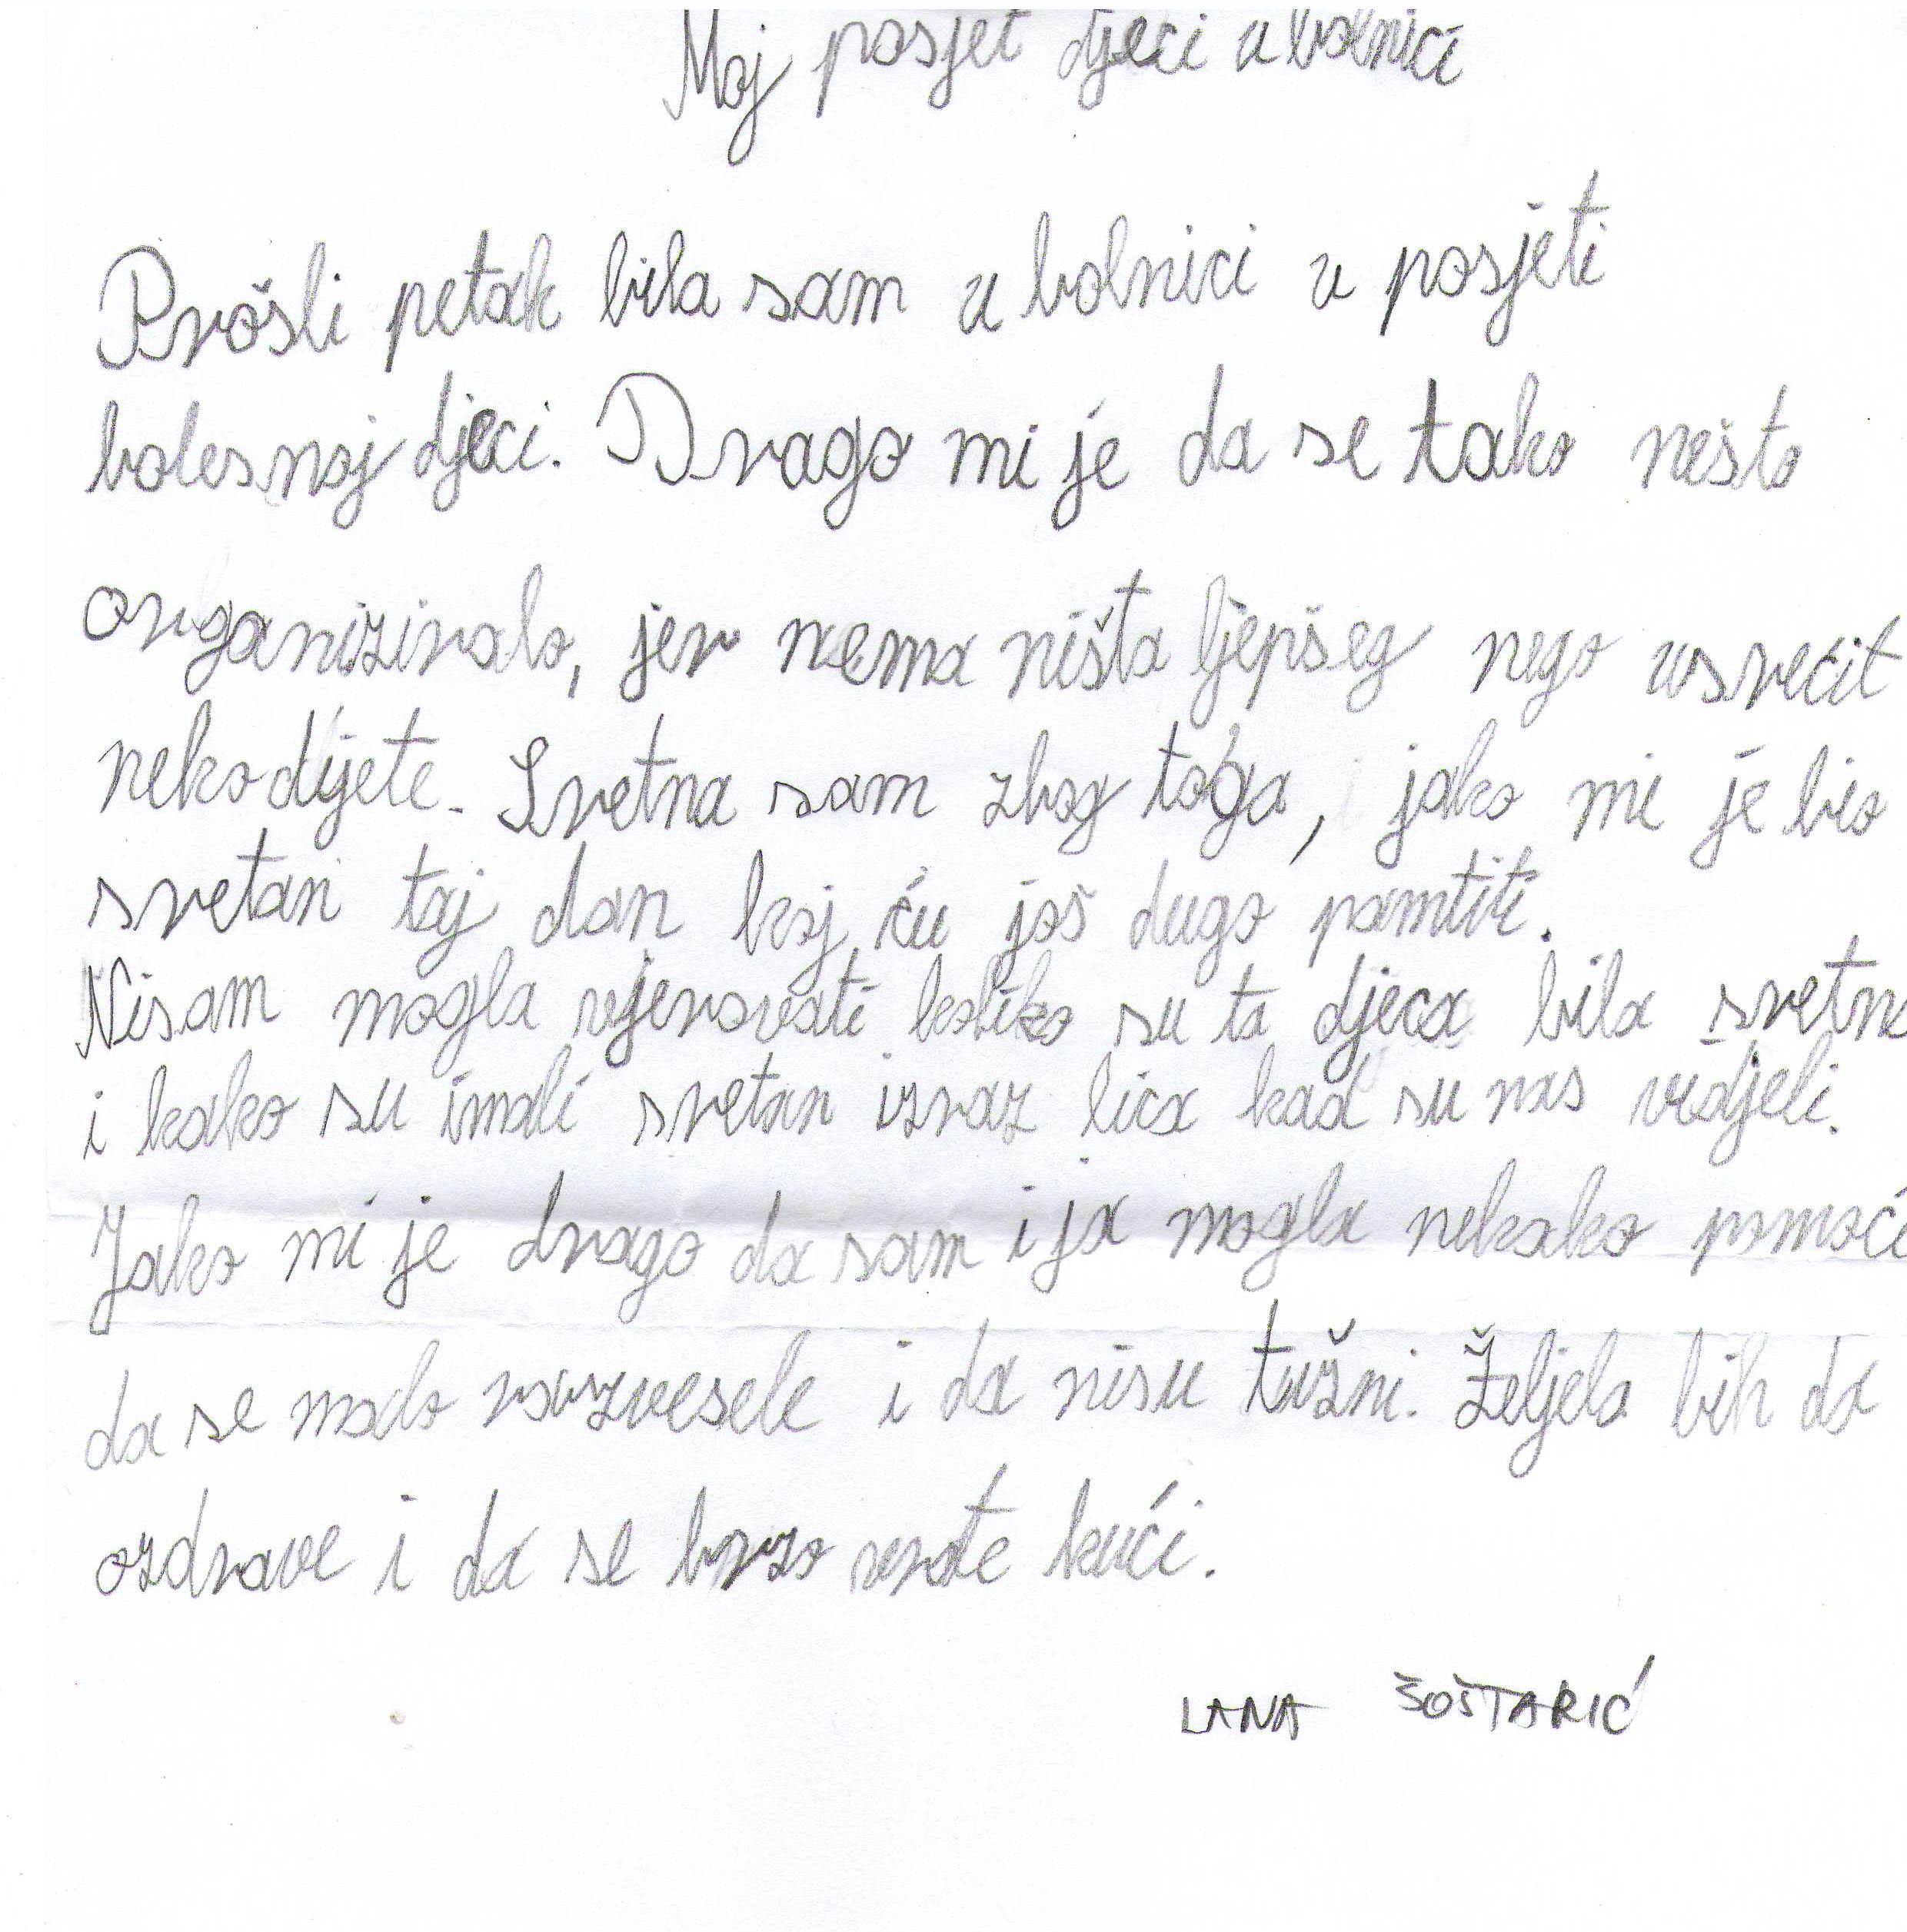 Moj posjet djeci u bolnici
Prošli petak bila sam u bolnici u posjeti
bolesnoj djeci. Drago mi je da se tako nešto
organiziralo, jer nema ništa ljepšeg nego usrećit
neko dijete. Sretna sam zbog toga, jako mi je bio
sretan taj dan koj ću još dugo pamtiti.
Nisam mogla vjerovati koliko su ta djeca bila sretna
i kako su imali sretan izraz lica kad su nas vidjeli.
Jako mi je drago da sam i ja mogla nekako pomoći
da se malo razvesele i da nisu tužni. Željela bih da
ozdrave i da se brzo vrate kući.
LANA ŠOŠTARIĆ